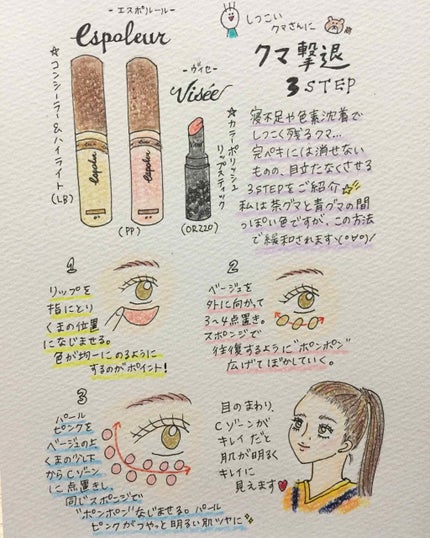 -エスポルール-
espoleur
☆コンシーラー＆ハイライト
(LB)
(PP)
-ヴィセ-
Visée
☆カラーポリッシュ
リップスティック
(OR220)
しつこい
クマさんに
クマ撃退
3 STEP
寝不足や色素沈着で
しつこく残るクマ…
完ペキには消せない
ものの、目立たなくさせる
3STEPをご紹介☆
私は茶グマと青グマの間
っぽい色ですが、この方法
で緩和されますヽ(°∀°)ﾉ
1
リップを
指にとり
くまの位置
になじませる。
色が均一にのるように
するのがポイント!
2
ベージュを
外に向かって
3〜4点置き。
スポンジで
往復するように"ポンポン"
広げてぼかしていく。
3
パール
ピンクを
ベージュの上
くまの少し下
からCゾーン
に点置きし、
同じスポンジで
"ポンポン"なじませる。パール
ピンクがつやっと明るい肌ツヤに
目のまわり、
Cゾーンが
キレイだと
肌が明るく
キレイに
見えます♥